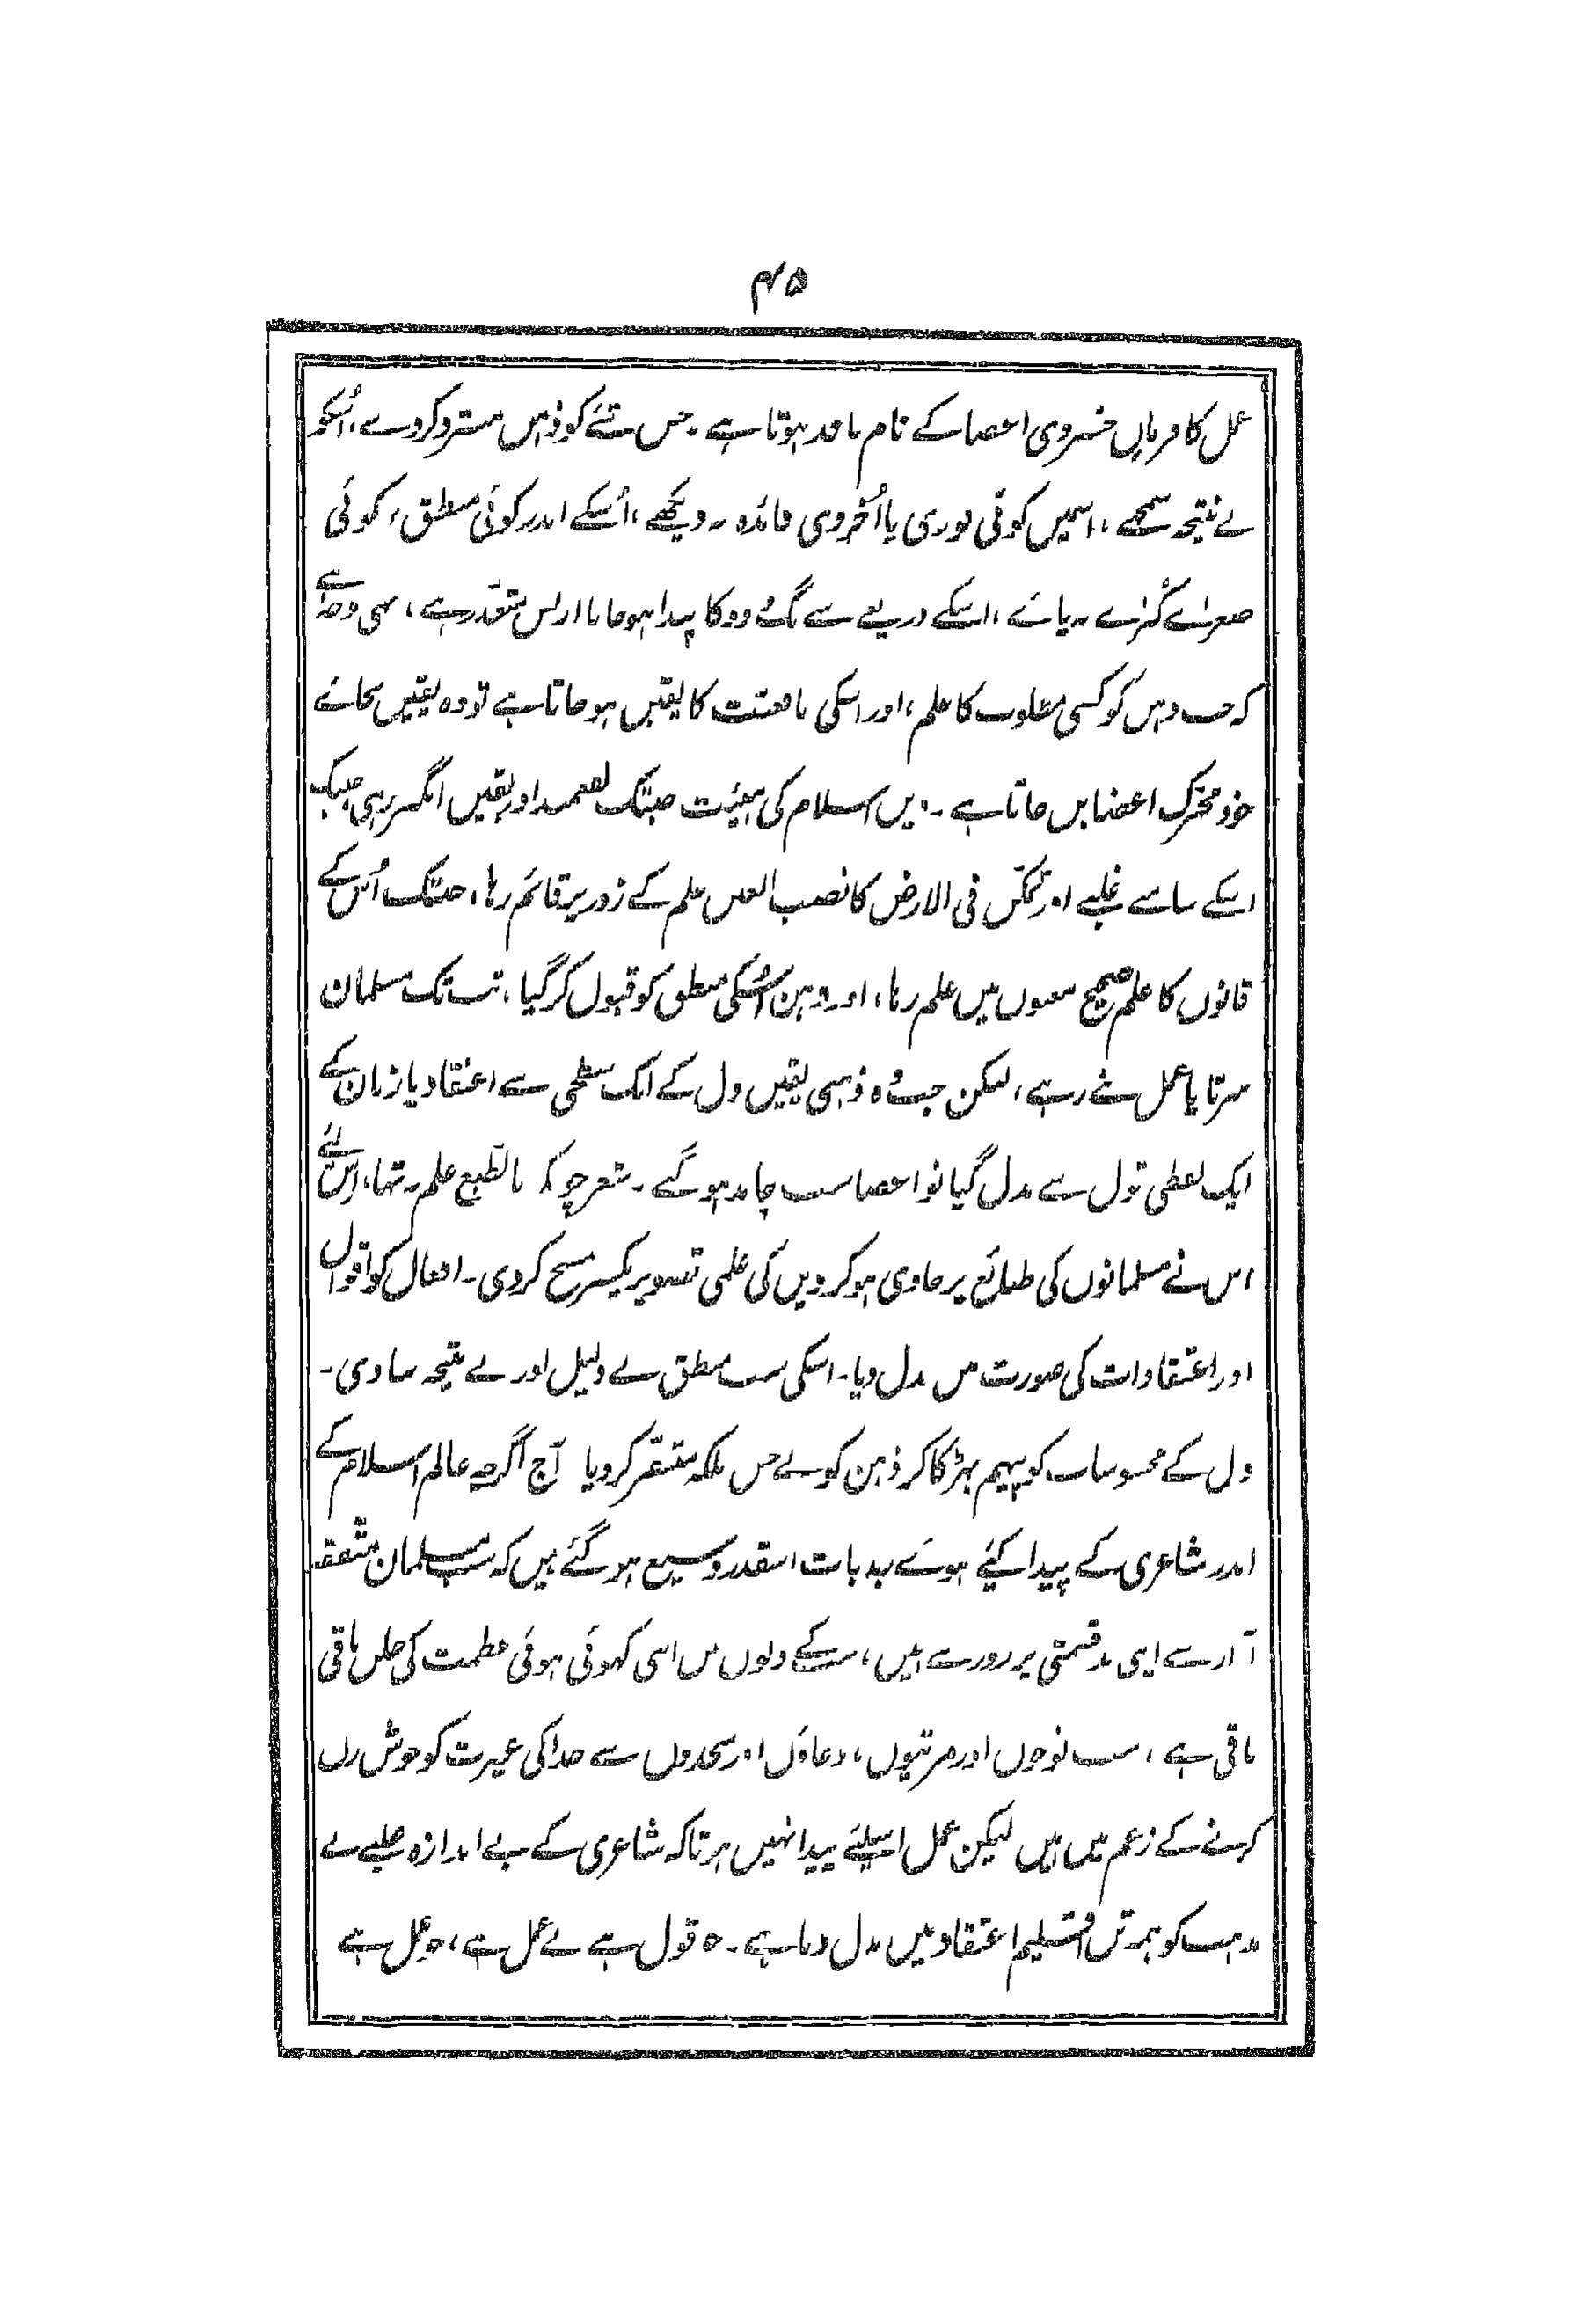 ۴۵
عمل کا فرمان خسروی اعضا کے نام نافذ ہوتا ہے۔ جس شے کو ذہن مسترد کردے، اُسکو
بے نتیجہ سمجھے، اسمیں کوئی فوری یا اُخروی فائدہ نہ دیکھے، اُسکے اندر کوئی منطق، کوئی
صغراے کُبراے نہ پائے، اسکے ذریعے سے تگ و دو کا پیدا ہو جانا ازبس متعذر ہے، یہی وجہ ہے
کہ جب ذہن کو کسی مطلوب کا علم، اور اسکی نافعیّت کا یقین ہو جاتا ہے تو وہ یقین بجائے
خود محرّک اعضا بن جاتا ہے۔ دین اسلام کی ہیئت جبتک اور یقین انگیز رہی جبتک
اسکے سامنے غلبے اور تمکّن فی الارض کا نصب العین علم کے زور پر قائم رہا، جبتک اُس کے
قانون کا علم صحیح معنوں میں علم رہا، اور ذہن اُسکی منطق کو قبول کر گیا، تب تک مسلمان
سرتاپا عمل بنے رہے، لیکن جب وُہ ذہنی یقین دل کے ایک سطحی سے اعتقاد یا زبان کے
ایک لفظی قول سے بدل گیا تو اعضا سب جامد ہو گئے۔ شعر چونکہ بالطّبع علم نہ تھا، اس لئے
اس نے مسلمانوں کی طبائع پر حاوی ہو کر دین کی علمی تصویر یکسر مسخ کر دی۔ افعال کو اقوال
اور اعتقادات کی صورت میں بدل دیا۔ اسکی سب منطق بے دلیل اور بے نتیجہ بنا دی۔
دل کے محسوسات کو پیہم بھڑکا کر ذہن کو بے حس بلکہ متنفّر کر دیا آج اگرچہ عالم اسلام کے
اندر شاعری کے پیدا کئے ہوئے جذبات اسقدر وسیع ہو گئے ہیں کہ سب مسلمان متّفقہ
آواز سے اپنی بدقسمتی پر رو رہے ہیں، سب کے دلوں میں اپنی کھوئی ہوئی عظمت کی جلن باقی
باقی ہے، سب نوحوں اور مرثیوں، دعاؤں اور سجدوں سے خدا کی غیرت کو جوش زن
کرنے کے زعم میں ہیں لیکن عمل اسلئے پیدا نہیں ہوتا کہ شاعری کے بے اندازہ غلبے نے
مذہب کو ہمہ تن تسلیم و اعتقاد میں بدل دیا ہے۔ وہ قول ہے بے عمل ہے، وہ عمل ہے